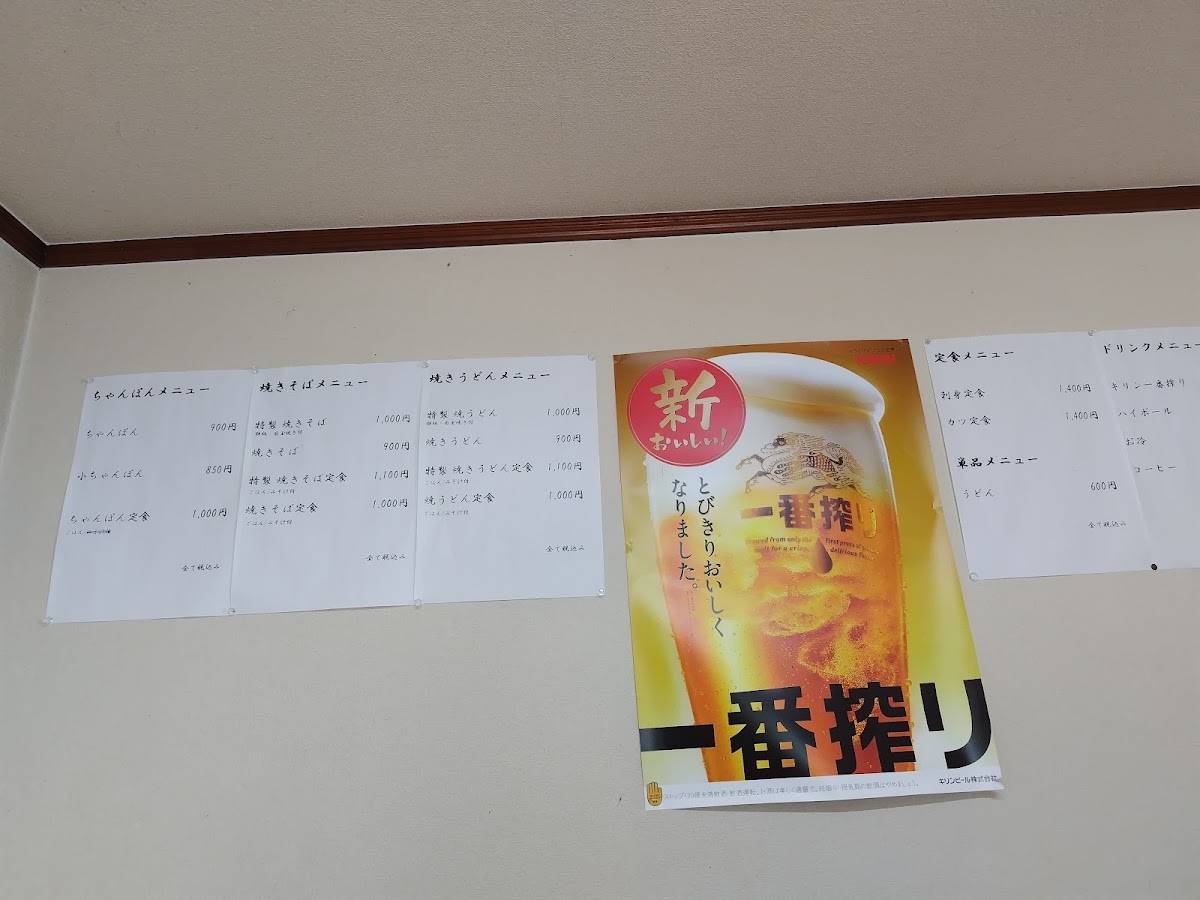 ちゃんぽんメニュー
ちゃんぽん 900円
小ちゃんぽん 850円
ちゃんぽん定食 1,000円
全て税込み
焼きそばメニュー
特製 焼きそば 1,000円
焼きそば 900円
特製 焼きそば定食 1,100円
ごはん・みそ汁付
焼きそば定食 1,000円
ごはん・みそ汁付
全て税込み
焼きうどんメニュー
特製 焼うどん 1,000円
焼きうどん 900円
特製 焼きうどん定食 1,100円
ごはん・みそ汁付
焼うどん定食 1,000円
ごはん・みそ汁付
全て税込み
新
おいしい!
とびきりおいしく
なりました。
一番搾り
一番搾り
キリンビール株式会社
定食メニュー
刺身定食 1,400円
カツ定食 1,400円
単品メニュー
うどん 600円
全て税込み
ドリンクメニュー
キリン一番搾り
ハイボール
お冷
コーヒー